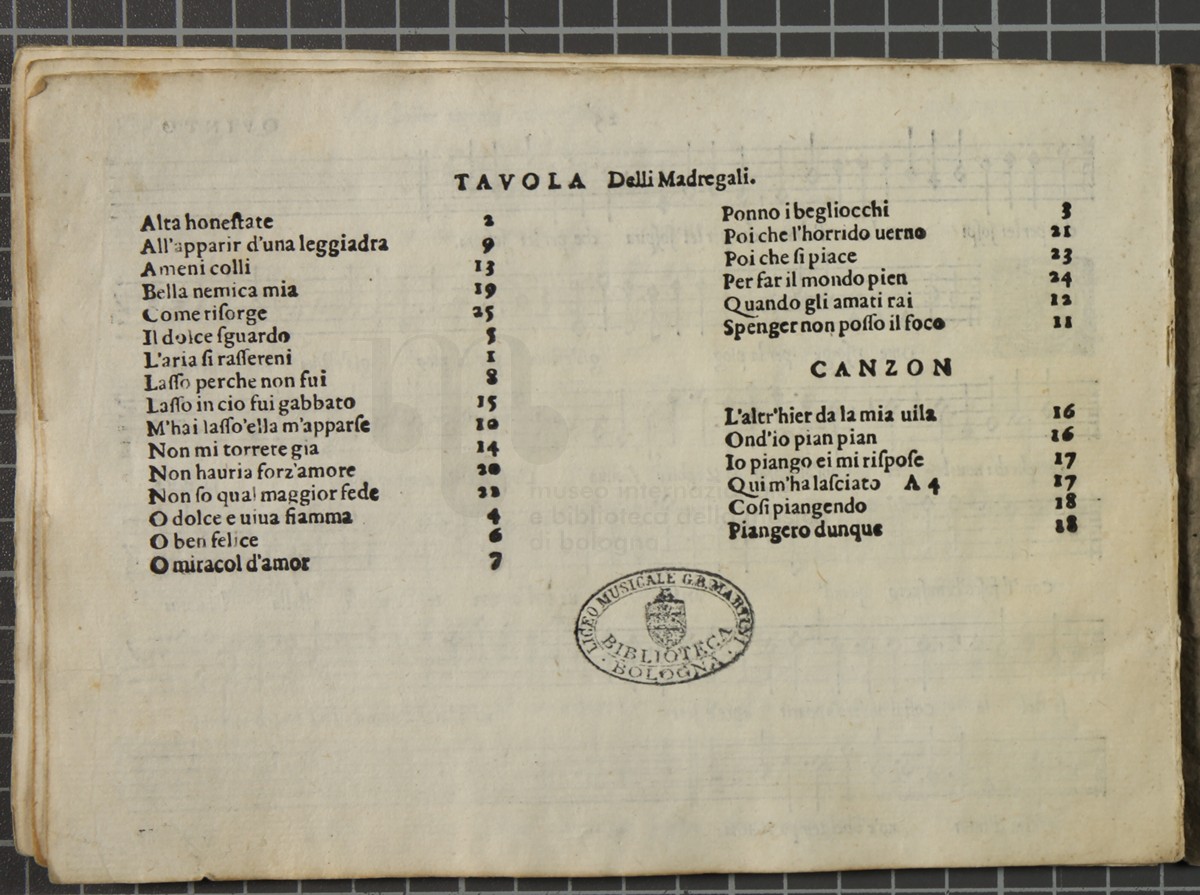 TAVOLA Delli Madregali.
Alta honeſtate 2
All'apparir d'una leggiadra 9
Ameni colli 13
Bella nemica mia 19
Come riſorge 25
Il dolce ſguardo 5
L'aria ſi raſſereni 1
Laſſo perche non fui 8
Laſſo in cio fui gabbato 15
M'hai laſſo'ella m'apparſe 10
Non mi torrete gia 14
Non hauria forz'amore 20
Non ſo qual maggior fede 22
O dolce e uiua fiamma 4
O ben felice 6
O miracol d'amor 7
Ponno i begliocchi 3
Poi che l'horrido uerno 21
Poi che ſi piace 23
Per far il mondo pien 24
Quando gli amati rai 12
Spenger non poſſo il foco 11
CANZON
L'altr'hier da la mia uila 16
Ond'io pian pian 16
Io piango ei mi riſpoſe 17
Qui m'ha laſciato A 4 17
Coſi piangendo 18
Piangero dunque 18
museo internazi
e biblioteca dell
di bologna
LICEO MUSICALE G.B. MARTINI
BIBLIOTECA
BOLOGNA
QVINTO